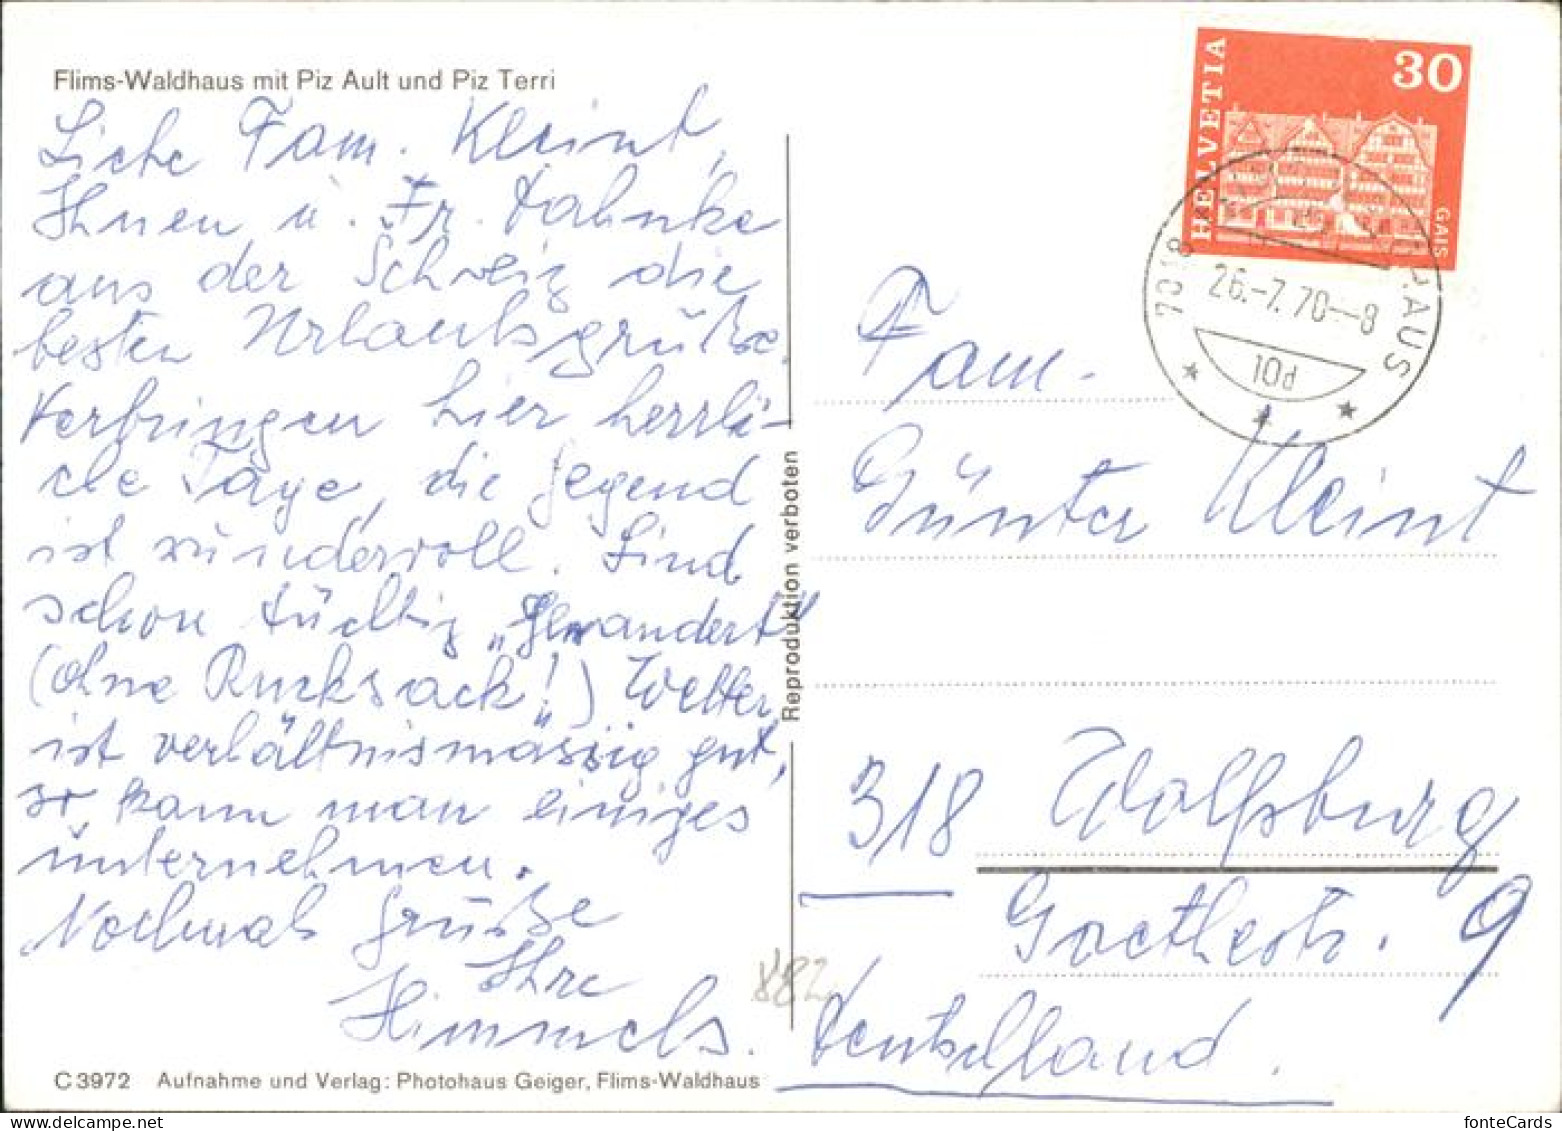 Flims-Waldhaus mit Piz Ault und Piz Terri
Liebe Fam. Kleint,
Ihnen u. Fr. Jahnke
aus der Schweiz die
besten Urlaubsgrüße.
Verbringen hier herrli-
che Tage, die Gegend
ist wundervoll. Sind
schon tüchtig „gewandert"
(ohne Rucksack!) Wetter
ist verhältnismässig gut,
so kann man einiges
unternehmen.
Nochmals Grüße
Ihre
Himmels.
C 3972 Aufnahme und Verlag: Photohaus Geiger, Flims-Waldhaus
Reproduktion verboten
882
HELVETIA
30
GAIS
7018
26.-7.70--8
10d
Fam.
Günter Kleint
318 Wolfsburg
Goethestr. 9
Deutschland.
fonteCards